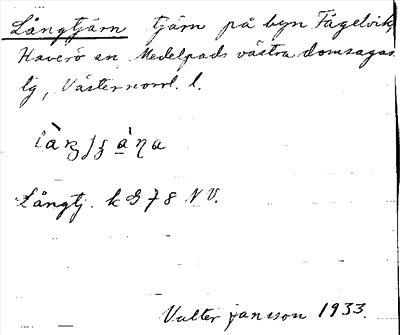 Långtjärn tjärn på byn Fågelvik,
Haverö sn, Medelpads västra domsagas
lg, Västernorrl. l.
Långtj. k G 78 NV.
Valter Jansson 1933.